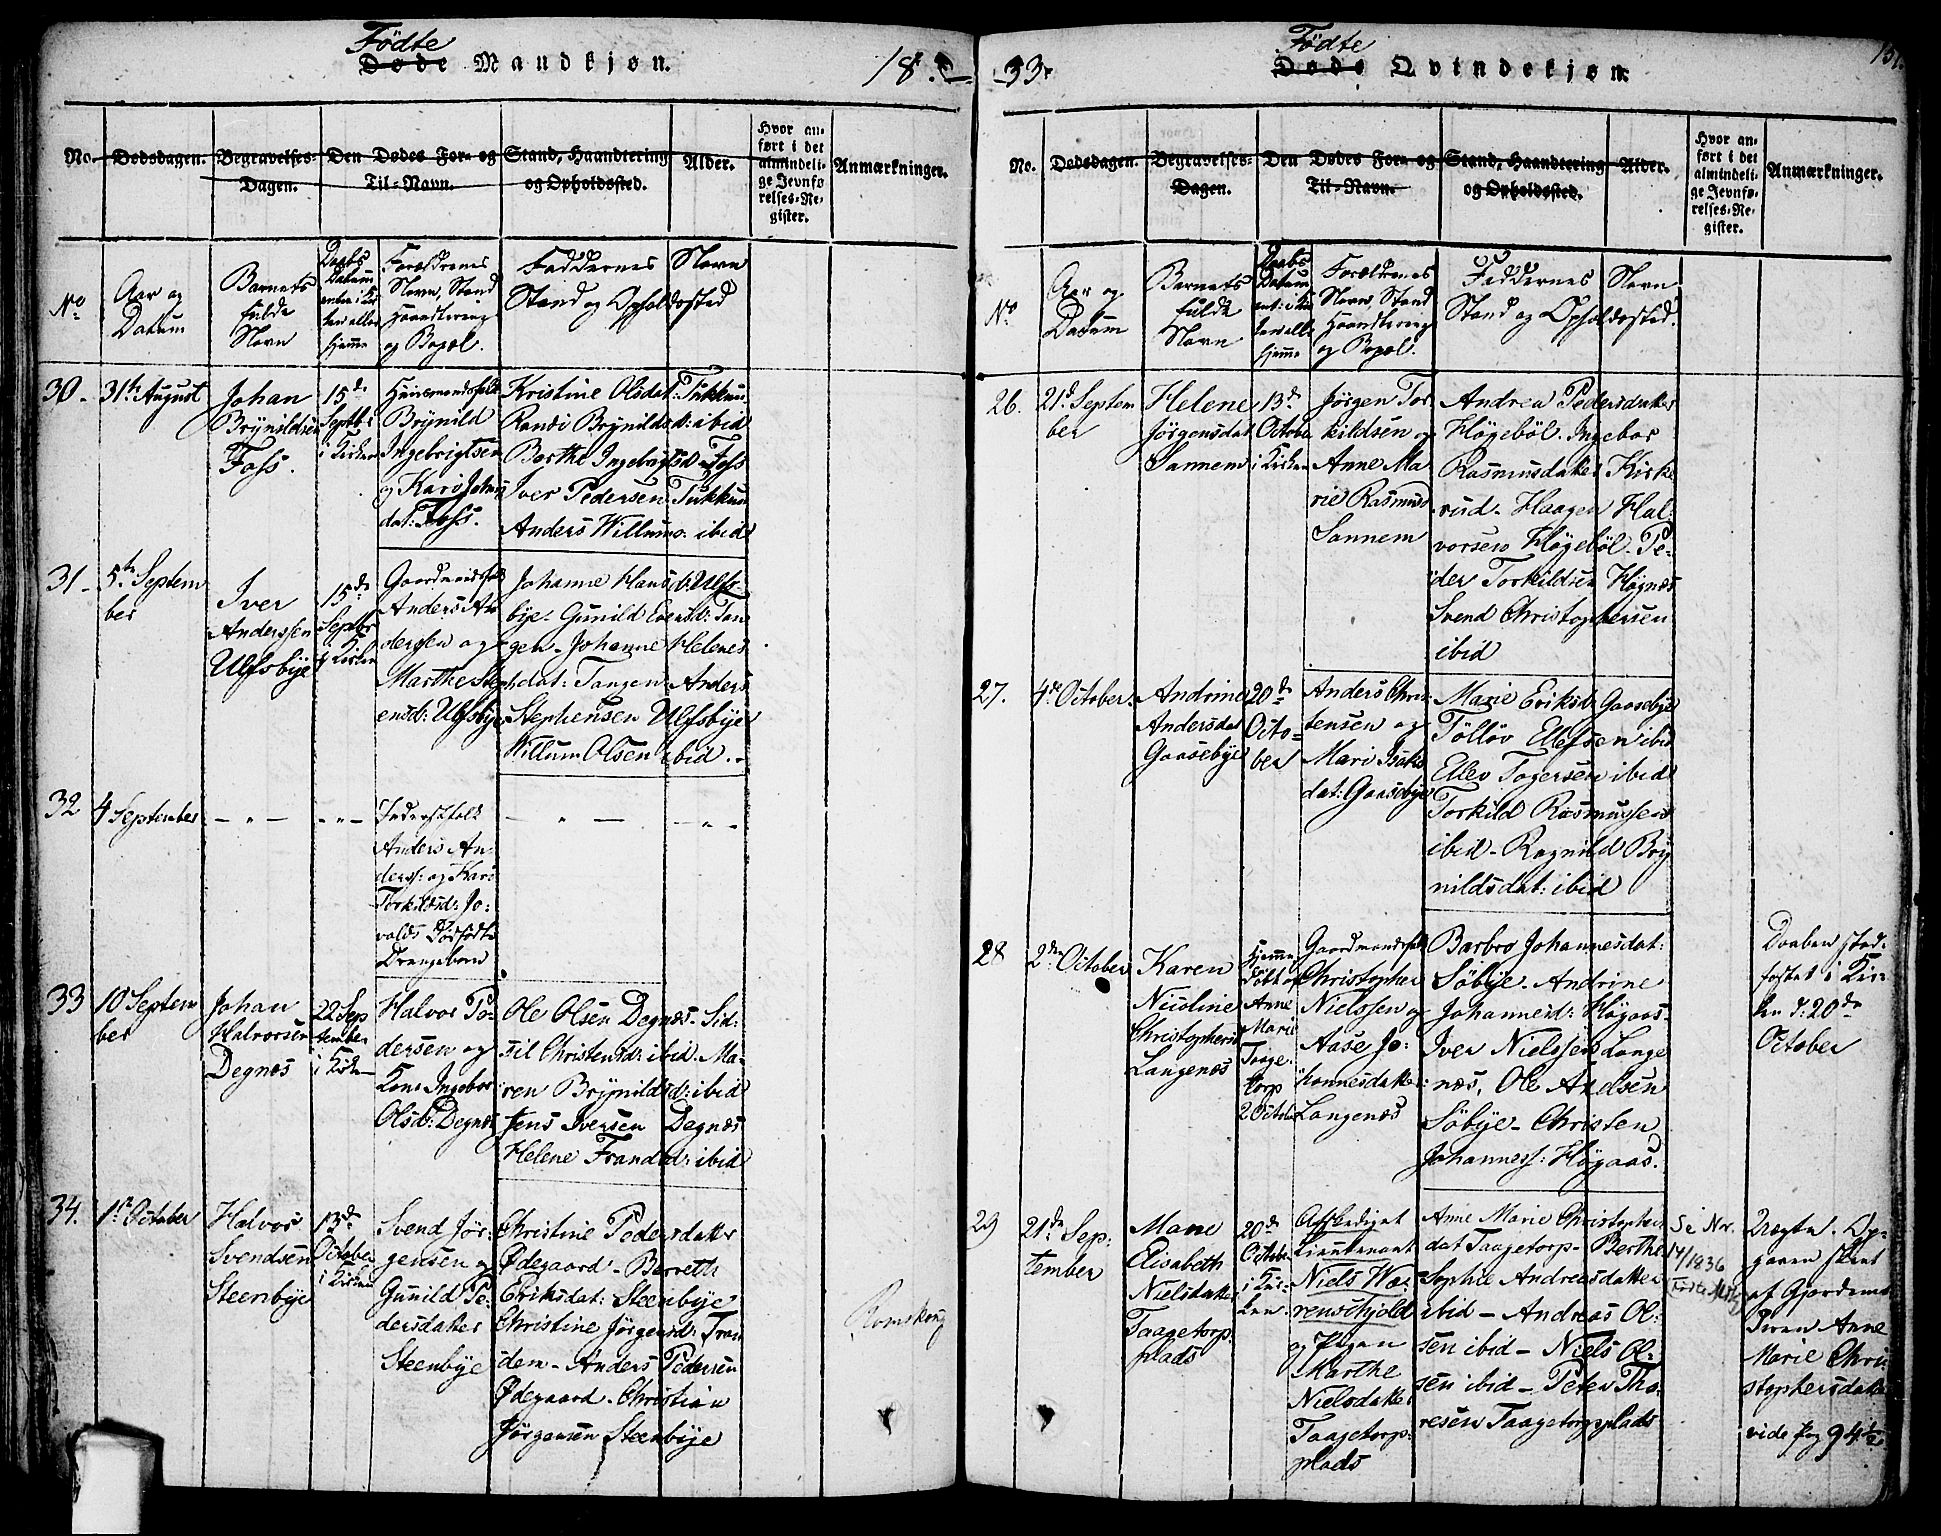 Fødte
Døde Mandkjøn.
18
No.
Dødsdagen.
Begravelses-
Dagen.
Den Dødes For- og
Til-Navn.
Stand, Haandtering
og Opholdssted.
Alder.
Hvor an-
ført i det
almindeli-
ge Jevnfø-
relses-Re-
gister.
Anmærkninger.
No
Aar og
Datum
Barnets
fulde
Navn
Daabs
Datum
enten i Kir
ken eller
hjemme
Forældrenes
Navn, Stand
Haandtering
og Bopæl.
Faddernes Navn
Stand og Opholdssted
30-
31te August
Johan
Brynildsen
Foss.
15de
Septbr
i Kirken
Huusmandsfolk
Brynild
Ingebrigtsen
og Kari Johns
dat: Foss.
Kristine Olsdat: Tukkuu
Randi Brynildsd: ibid
Berthe Ingebrigtsd: Foss
Iver Pedersen Tukkuu
Anders Willums: ibid
31-
5te Septem
ber
Iver
Anderssen
Ulfsbye
15de
Septbr
i Kirken
Gaardmandsfolk
Anders An
dersen og
Marthe Steph
ensd: Ulfsbye
Johanne Hansd: Ulfs
bye. Gunild Evensd: Tan
gen- Johanne Helenes
dat: Tangen- Anders
Stephensen Ulfsbye
Willum Olsen ibid.-
32
4 September
- " -
- " -
Inderstfolk
Anders An-
derss: og Kari
Torkildsd: Jo-
valds Dødfødte
Drengebarn
- " -
- " -
33
10 Septem
ber
Johan
Halvorsen
Degnæs
22 Sep
tember
i Kirken
Halvor Pe-
dersen og
Kone Ingebor
Olsd: Degnæs
Ole Olsen Degnæs- Sid-
sil Christensd: ibid: Ma-
ren Brynildsd: ibid
Jens Iversen Degnæs
Helene Frandsd: ibid
34.
1ste October
Halvor
Svendsen
Steenbye
13de
October
i Kirken
Svend Jør-
gensen og
Gunild Pe-
dersdatter
Steenbye
Christine Pedersdatter
Ødegaard- Berreth
Eriksdat: Steenbye
Christine Jørgensd: Tran
dem- Anders Pedersen
Ødegaard- Christian
Jørgensen Steenbye
Romskoug
33.
Fødte
Døde Qvindekjøn.
151.
No.
Dødsdagen.
Begravelses-
Dagen.
Den Dødes For- og
Til-Navn.
Stand, Haandtering
og Opholdssted.
Alder.
Hvor an-
ført i det
almindeli-
ge Jevnfø-
relses-Re-
gister.
Anmærkninger.
No
Aar og
Datum
Barnets
fulde
Navn
Daabs
Datum
ent: i Kir
ken elle
hjemme
Forældrenes
Navn, Stand
Haandtering
og Bopæl.
Faddernes Navn
Stand og Opholdssted.
26.
21de Septem
ber
Helene
Jørgensdat
Sannem
13de
Octobe
i Kirken
Jørgen Tor
kildsen og
Anne Ma
rie Rasmusd
Sannem
Andrea Pedersdatter
Høgeböl. Ingebor
Rasmusdatter Kirke
rud- Haagen Hal-
vorsen Høgeböl- Pe-
der Torkildsen Høgnæs
Svend Christophersen
ibid
27.
4de October.
Andrine
Andersdat
Gaasebye
20de
Octo-
ber
Anders Chris
tensen og
Mari Isaks
dat: Gaasebye
Marie Eriksd: Gaasebye
Tølløv Ellefsen ibid
Ellev Togersen ibid
Torkild Rasmussen
ibid- Ragnild Bry
nildsdat: ibid
28
2den October
Karen
Nicoline
Christophersd
Langenæs
Hjemme
døbt af
Anne
Marie
Taage-
torp
2 Octob
Gaardmandsfolk
Christopher
Nielssen og
Aase Jo-
hannesdatter
Langenæs
Barbro Johannesdat:
Søbye- Andrine
Johannesd: Høgaas-
Iver Nielssen Lange
næs, Ole Andsen
Søbye- Christen
Johanness: Høgaas.
Daaben stad-
fæstet i Kir-
ken d: 20de
October
29
21de Sep-
tember
Mane
Elisabeth
Nielsdatter
Taagetorp-
plads
20de
Octobe
i Kir-
ken
Afskediget
Lieutenant
Niels Wæ-
renschjold
og Pigen
Marthe
Nielsdatter
Taagetorp-
plads
Anne Marie Christopher
dat Taagetorp- Berthe
Sophie Andreasdatter
ibid- Andreas Ol-
sen ibid- Niels Ol-
sen ibid- Peter Tho-
resen Taagetorpplads
Se Nr.
14/1836
Uægte. Op-
gaven skeet
af Gjordemo-
deren Anne
Marie Chri
stophersdatter
vide pag 94 1/2